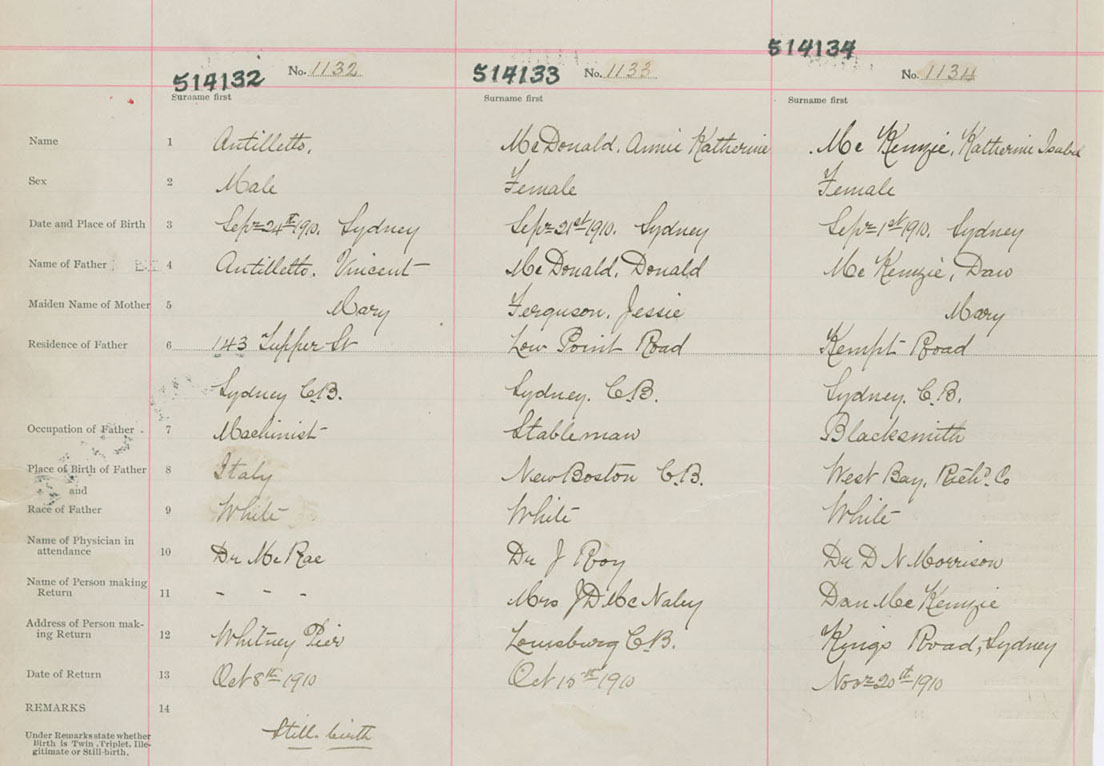 514132 No. 1132 514133 No. 1133 514134 No. 1134
Surname first Surname first Surname first
Name 1 Antilletto, McDonald, Annie Katherine McKenzie, Katherine Isabel
Sex 2 Male Female Female
Date and Place of Birth 3 Sept 24th 1910. Sydney Sept 21st 1910. Sydney Sept 1st 1910, Sydney
Name of Father 4 Antilletto, Vincent McDonald, Donald McKenzie, Dan
Maiden Name of Mother 5 Mary Ferguson, Jessie Mary
Residence of Father 6 143 Tupper St Low Point Road Kempt Road
Sydney C.B. Sydney, C.B. Sydney, C.B.
Occupation of Father 7 Machinist Stableman Blacksmith
Place of Birth of Father 8 Italy New Boston C.B. West Bay, Richd. Co
and
Race of Father 9 White White White
Name of Physician in
attendance 10 Dr McRae Dr J Roy Dr D N Morrison
Name of Person making
Return 11 - - - Mrs J D Dan McKenzie
Address of Person mak-
ing Return 12 Whitney Pier Louisburg C.B. Kings Road, Sydney
Date of Return 13 Oct 8th 1910 Oct 15th 1910 Nov 20th 1910
REMARKS 14
Under Remarks state whether
Birth is Twin, Triplet, Ille-
gitimate or Still-birth.
Still birth